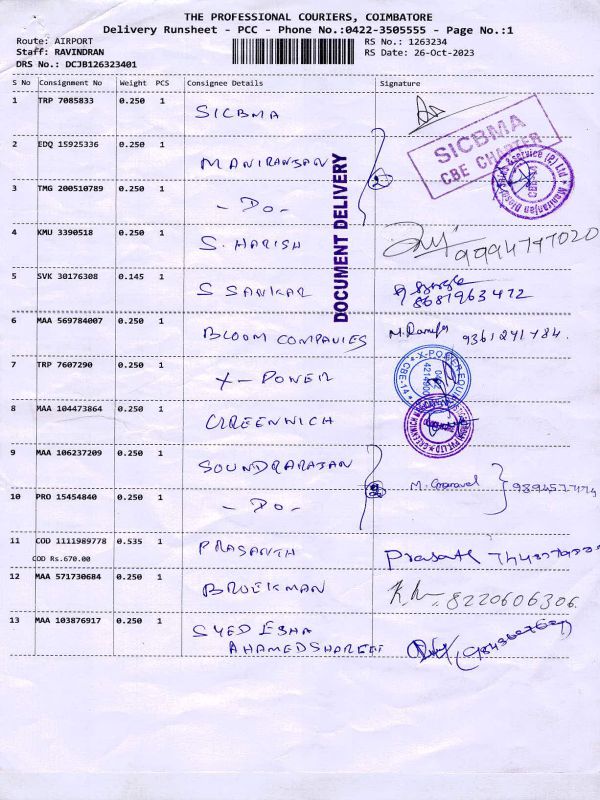 THE PROFESSIONAL COURIERS, COIMBATORE
Delivery Runsheet - PCC - Phone No.:0422-3505555 - Page No.:1
Route: AIRPORT RS No.: 1263234
Staff: RAVINDRAN RS Date: 26-Oct-2023
DRS No.: DCJB126323401
S No Consignment No Weight PCS Consignee Details Signature
1 TRP 7085833 0.250 1 SICBMA
SICBMA
CBE CHAPTER
2 EDQ 15925336 0.250 1 MANIRANJAN
3 TMG 200510789 0.250 1 - DO -
DOCUMENT DELIVERY
4 KMU 3390518 0.250 1 S. HARISH 9994747020
5 SVK 30176308 0.145 1 S SANKAR 8681963472
6 MAA 569784007 0.250 1 BLOOM COMPANIES 9361241484.
7 TRP 7607290 0.250 1 X-POWER
8 MAA 104473864 0.250 1 GREENWICH
9 MAA 106237209 0.250 1 SOUNDRARAJAN
10 PRO 15454840 0.250 1 - DO -
11 COD 1111989778 0.535 1 PRASANTH Prasath
COD Rs.670.00
12 MAA 571730684 0.250 1 BROEKMAN 8220606306.
13 MAA 103876917 0.250 1 SYED ESHA
AHAMEDSHAREEF